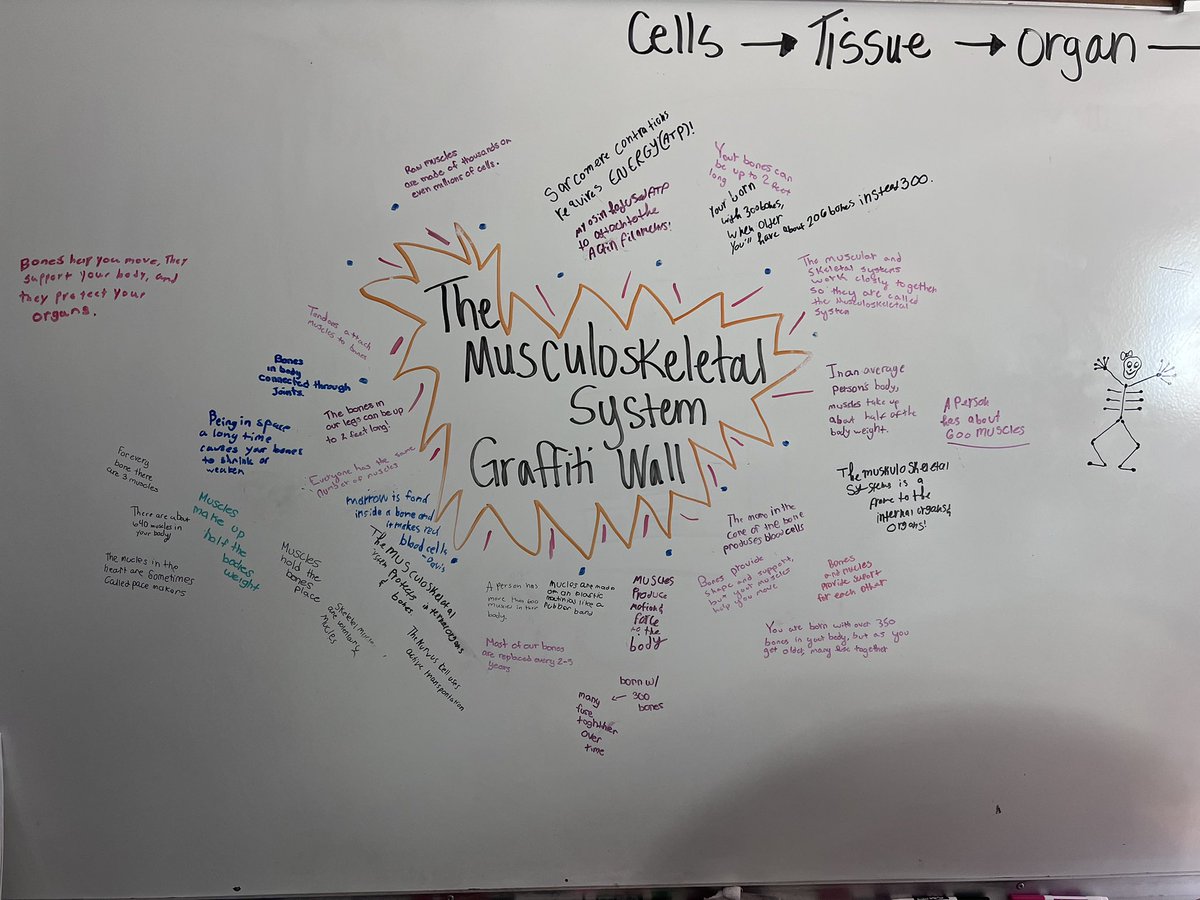 Cells → Tissue → Organ
Raw muscles
are made of thousands or
even millions of cells.
Sarcomere contrations
requires ENERGY(ATP)!
Myosin
to attach to the
Actin Filaments!
Your bones can
be up to 2 feet
long
Your born
with 300 bones,
when older
You'll have about 206 bones instead 300.
Bones help you move, They
support your body, and
they protect your
organs.
The muscular and
skeletal systems
work closely together
so they are called
the Musculoskeletal
System
The
Musculoskeletal
System
Graffiti Wall
Tendons attach
muscles to bones
Bones
in body
connected through
joints.
The bones in
our legs can be up
to 2 feet long!
Being in space
a long time
causes your bones
to shrink or
weaken
Everyone has the same
number of muscles
In an average
person's body,
muscles take up
about half of the
body weight.
A person
has about
600 muscles
For every
bone there
are 3 muscles
There are about
640 muscles in
your body!
The mucles in the
heart are Sometimes
Called pace makers
Muscles
make up
half the
bodies
weight
marrow is fond
inside a bone and
it makes red
blood cells
-Davis
The musculoskeletal
system Protects internal organs
&
bones
Muscles
hold the
bones
place
Skeletal
are voluntary
mucles
The Nurvus cell uses
active transportation
A person has
more than 600
muscles in their
body.
Mucles are made
of an elastic
matirial like a
rubber band
Most of our bones
are replaced every 2-5
years
Muscles
Produce
motion &
force
to the
body
born w/
← 300
bones
many
fuse
toghthier
over
time
The muskuloskeletal
Systems is a
frame to the
internal organs &
organs!
The
in the
Core of the bone
produses bloow cells
Bones provide
shape and support,
but your muscles
help you move
Bones
and mucles
provide suport
for each other
You are born with over 350
bones in your body, but as you
get older, many fuse together